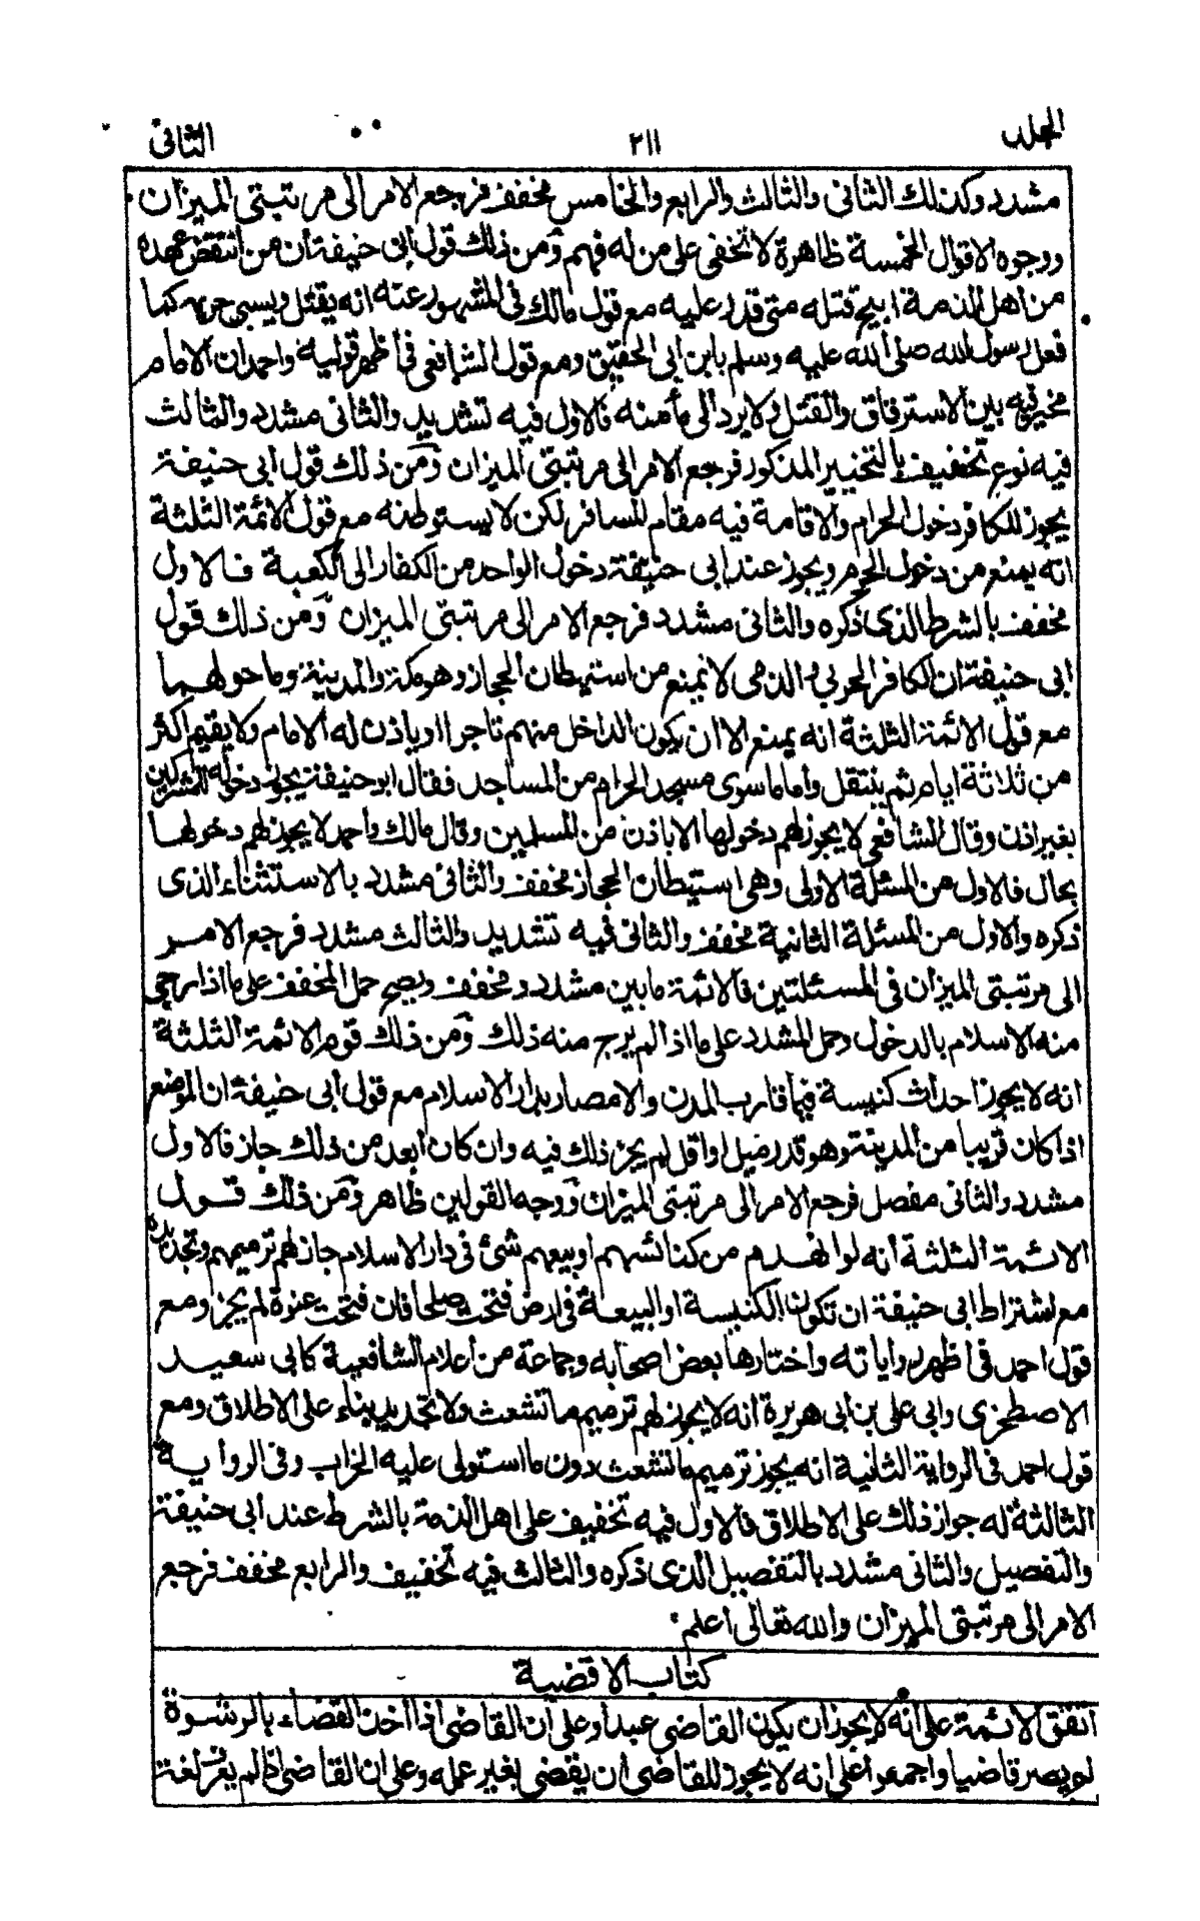 الجلد ٢١١ الثانى
مشدد وكذلك الثانى والثالث والرابع والخامس مخفف فرجع الامر الى مرتبتى الميزان
ووجوه الاقوال الخمسة ظاهرة لا تخفى على من له فهم ومن ذلك قول ابى حنيفة ان من انتقض عهده
من اهل الذمة ابيح قتله متى قدر عليه مع قول مالك فى المشهور عنه انه يقتل ويسبى حريمه كما
فعل رسول الله صلى الله عليه وسلم بابن ابى الحقيق ومع قول الشافعى فى اظهر قوليه واحمد ان الامام
مخير فيه بين الاسترقاق والقتل ولا يرد الى مأمنه فالاول فيه تشديد والثانى مشدد والثالث
فيه نوع تخفيف بالتخيير المذكور فرجع الامر الى مرتبتى الميزان ومن ذلك قول ابى حنيفة
يجوز للكافر دخول الحرام والاقامة فيه مقام المسافر لكن لا يستوطنه مع قول الائمة الثلثة
انه يمنع من دخول الحرم ويجوز عند ابى حنيفة دخول الواحد من الكفار الى الكعبة فالاول
مخفف بالشرط الذى ذكره والثانى مشدد فرجع الامر الى مرتبتى الميزان ومن ذلك قول
ابى حنيفة ان الكافر الحربى والذمى لا يمنع من استيطان الحجاز وهو مكة والمدينة وما حولهما
مع قول الائمة الثلثة انه يمنع الا ان يكون الداخل منهم تاجرا او ياذن له الامام ولا يقيم اكثر
من ثلاثة ايام ثم ينتقل واما ما سوى مسجد الحرام من المساجد فقال ابو حنيفة يجوز دخوله للمشركين
بغير اذن وقال الشافعى لا يجوز لهم دخولها الا باذن من المسلمين وقال مالك واحمد لا يجوز لهم دخولها
بحال فالاول من المسئلة الاولى وهى استيطان الحجاز مخفف والثانى مشدد بالاستثناء الذى
ذكره والاول من المسئلة الثانية مخفف والثانى فيه تشديد والثالث مشدد فرجع الامر
الى مرتبتى الميزان فى المسئلتين فالائمة ما بين مشدد ومخفف ويصح حمل المخفف على ما اذا رجى
منه الاسلام بالدخول وحمل المشدد على ما اذا لم يرج منه ذلك ومن ذلك قول الائمة الثلثة
انه لا يجوز احداث كنيسة فيما قارب المدن والامصار بدار الاسلام مع قول ابى حنيفة ان الموضع
اذا كان قريبا من المدينة وهو قدر ميل او اقل لم يجز ذلك فيه وان كان ابعد من ذلك جاز فالاول
مشدد والثانى مفصل فرجع الامر الى مرتبتى الميزان ووجه القولين ظاهر ومن ذلك قول
الائمة الثلثة انه لو انهدم من كنائسهم او بيعهم شئ فى دار الاسلام جاز لهم ترميمه وتجديده
مع اشتراط ابى حنيفة ان تكون الكنيسة او البيعة فى ارض فتحت صلحا فان فتحت عنوة لم يجز ومع
قول احمد فى اظهر رواياته واختارها بعض اصحابه وجماعة من اعلام الشافعية كابى سعيد
الاصطخرى وابى على بن ابى هريرة انه لا يجوز لهم ترميم ما تشعث ولا تجديد بناء على الاطلاق ومع
قول احمد فى الرواية الثانية انه يجوز ترميم ما تشعث دون ما استولى عليه الخراب وفى الرواية
الثالثة له جواز ذلك على الاطلاق فالاول فيه تخفيف على اهل الذمة بالشرط عند ابى حنيفة
والتفصيل والثانى مشدد بالتفصيل الذى ذكره والثالث فيه تخفيف والرابع مخفف فرجع
الامر الى مرتبتى الميزان والله تعالى اعلم
كتاب الاقضية
اتفق الائمة على انه لا يجوز ان يكون القاضى عبدا وعلى ان القاضى اذا اخذ القضاء بالرشوة
لم يصر قاضيا واجمعوا على انه لا يجوز للقاضى ان يقضى بغير عمله وعلى ان القاضى اذا لم يعرف لغة